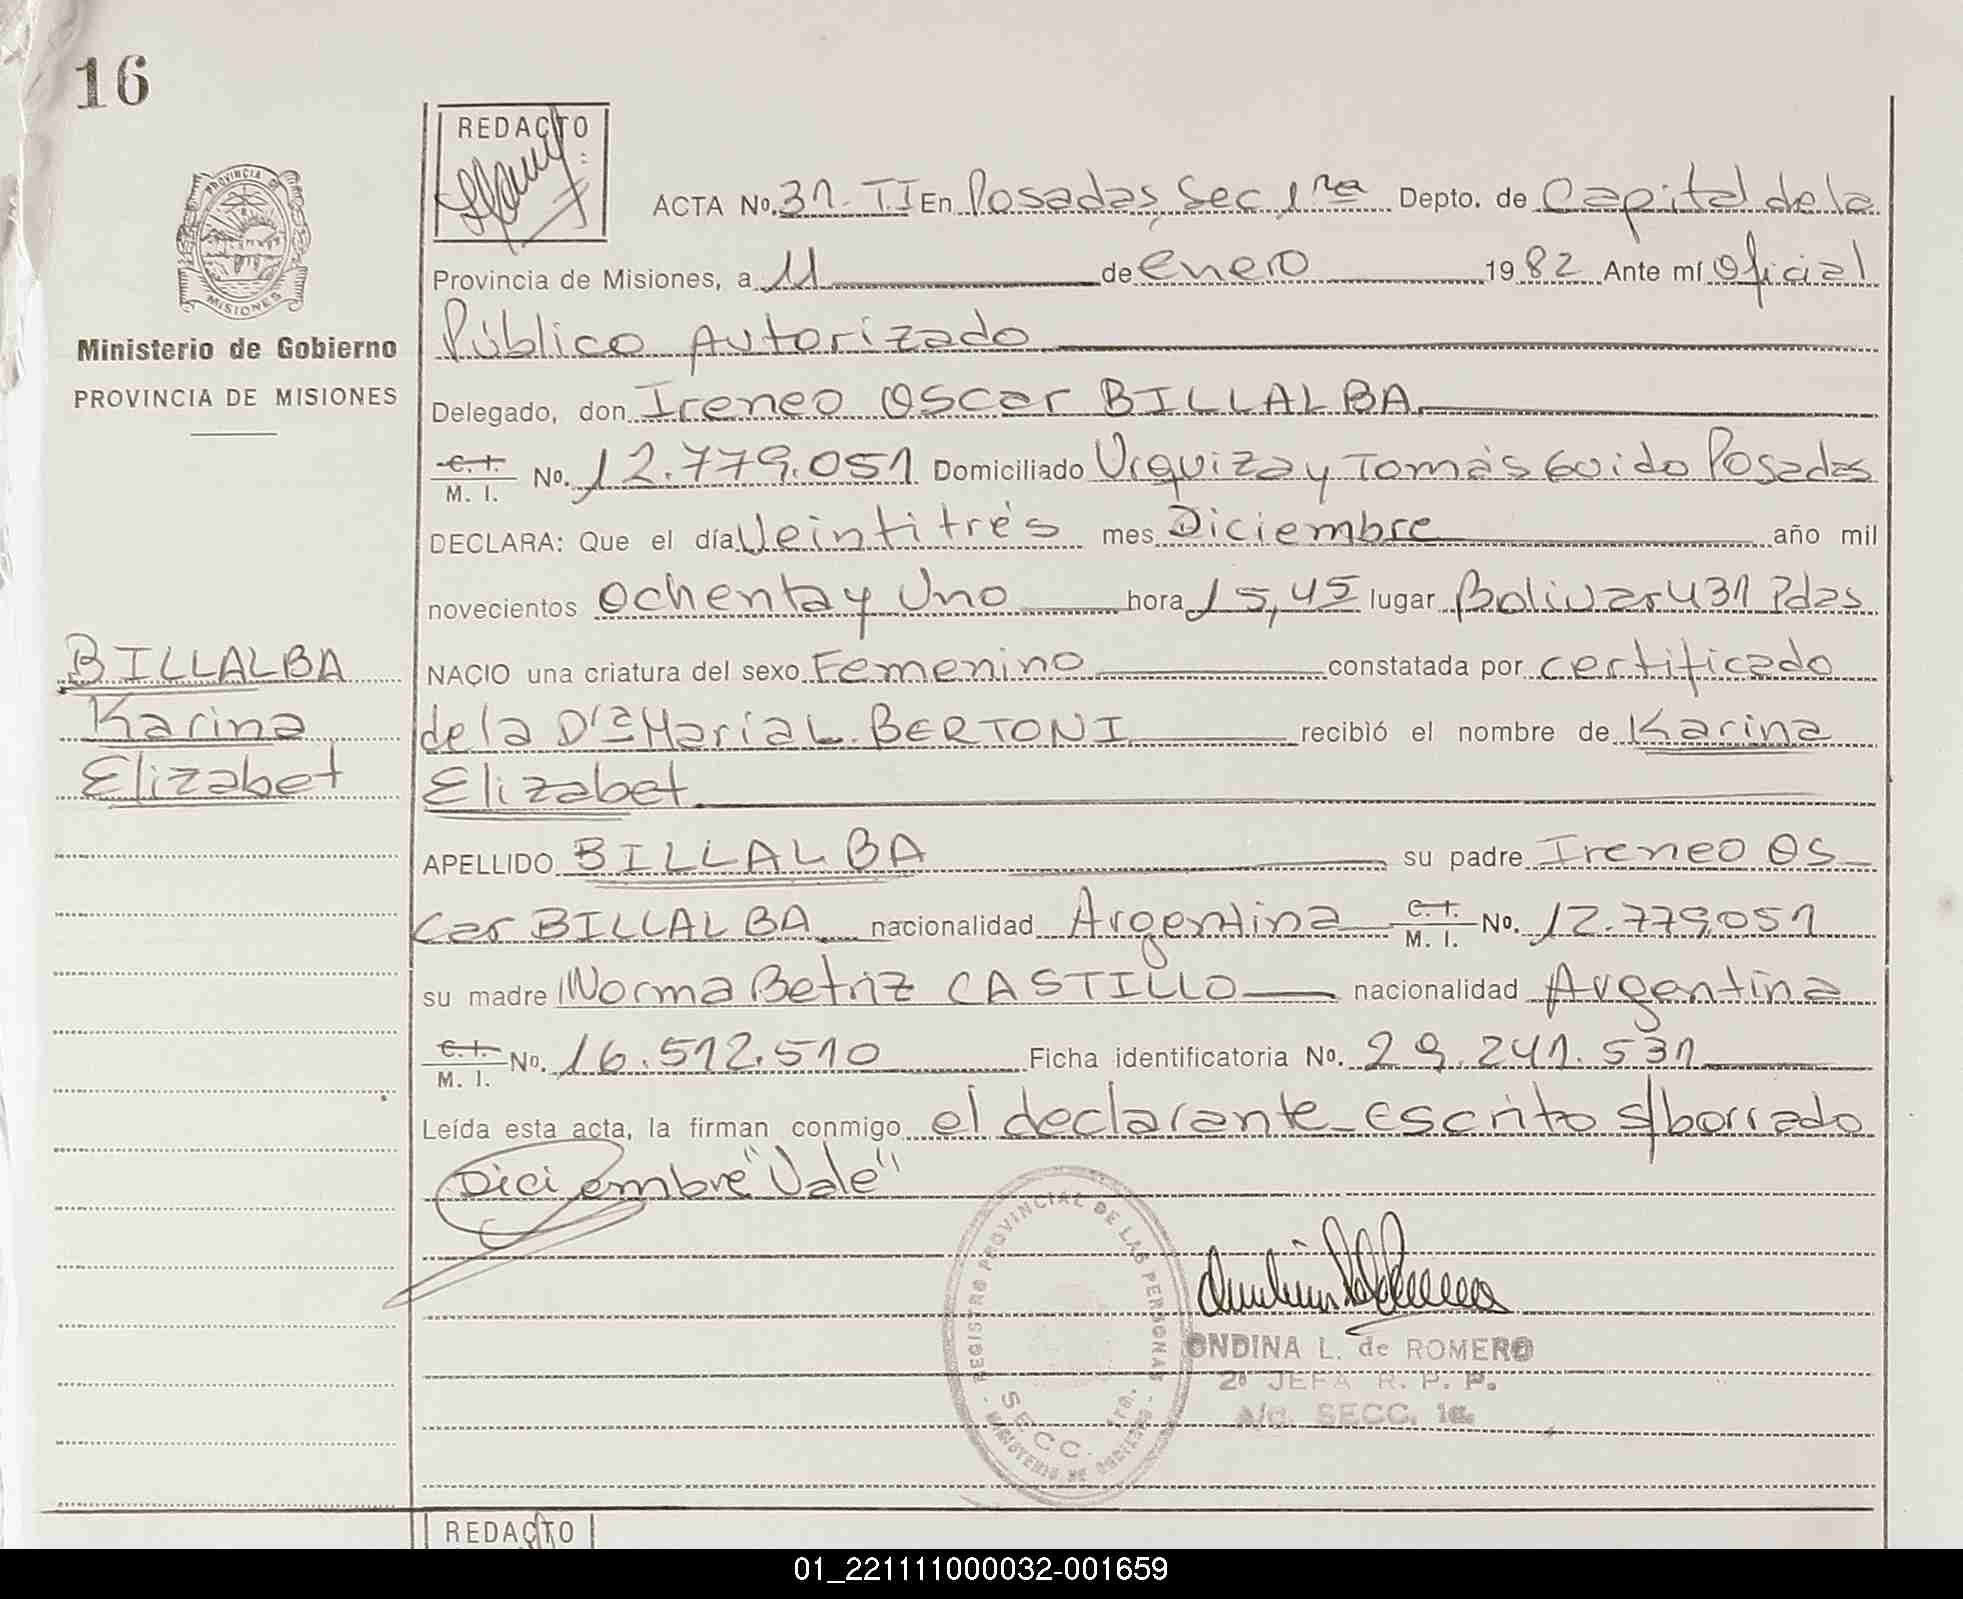 16
REDACTO
ACTA No. 31-TI En Posadas, Sec, 1ra Depto. de Capital de la
PROVINCIA DE
MISIONES
Provincia de Misiones, a 11 de enero 1982 Ante mí Oficial
Ministerio de Gobierno
Público Autorizado
PROVINCIA DE MISIONES
Delegado, don Ireneo Oscar BILLALBA
C. I. M. I. No. 12.779.051 Domiciliado Urquiza y Tomás Guido Posadas
DECLARA: Que el día Veintitrés mes Diciembre año mil
novecientos Ochenta y Uno hora 15,45 lugar Bolivar 431 Pdas
BILLALBA
NACIO una criatura del sexo Femenino constatada por certificado
Karina
de la Dra Maria L. BERTONI recibió el nombre de Karina
Elizabet
Elizabet
APELLIDO BILLALBA su padre Ireneo Os-
car BILLALBA nacionalidad Argentina C. I. M. I. No. 12.779.051
su madre Norma Betriz CASTILLO nacionalidad Argentina
C. I. M. I. No. 16.512.510 Ficha identificatoria No. 29.241.531
Leída esta acta, la firman conmigo el declarante_ escrito s/borrado
Diciembre "Vale"
REGISTRO PROVINCIAL DE LAS PERSONAS
SECC. 1ra.
MINISTERIO DE GOBIERNO
ONDINA L. de ROMERO
2ª JEFA R. P. P.
A/C. SECC. 1a.
REDACTO
01_221111000032-001659